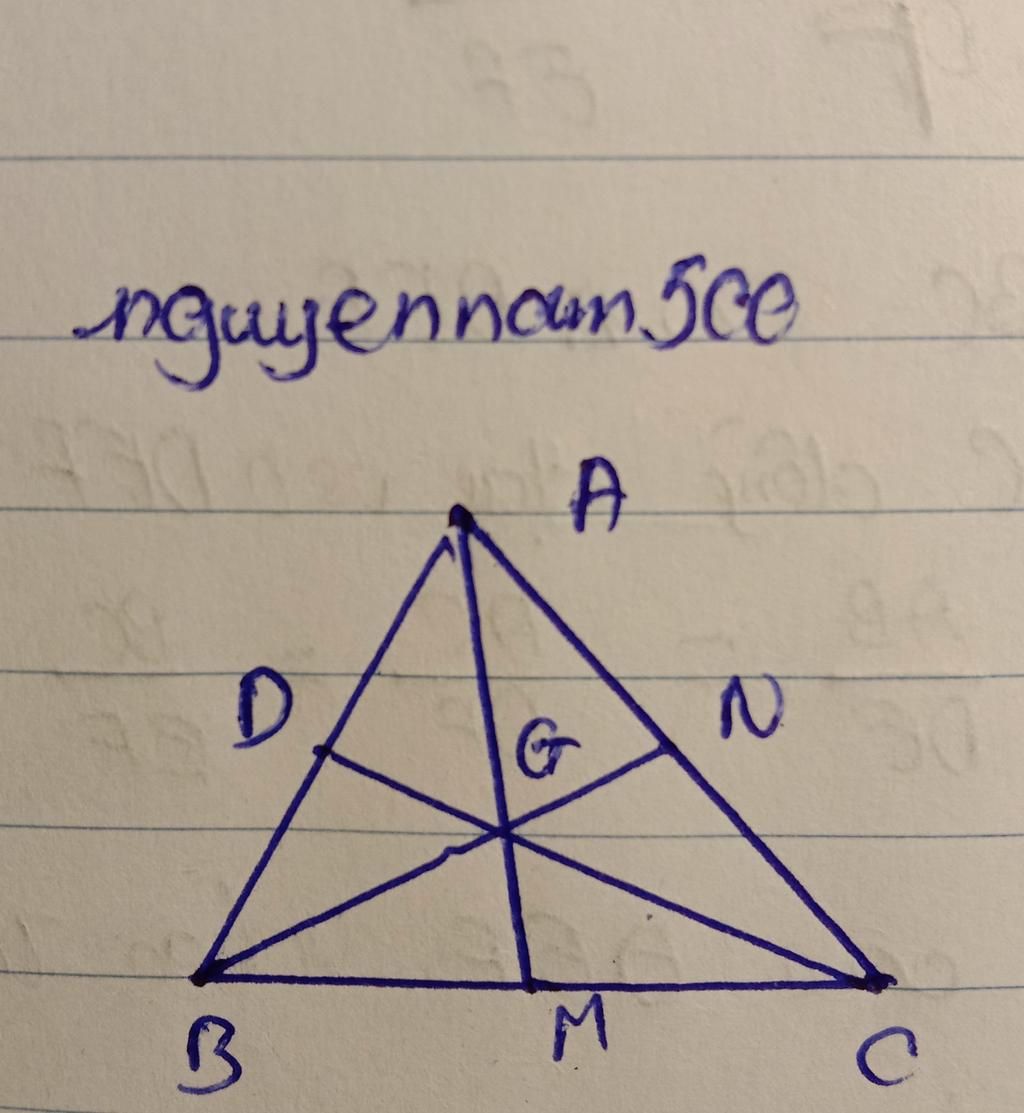 nguyennam5ce
A
D
N
G
B
M
C